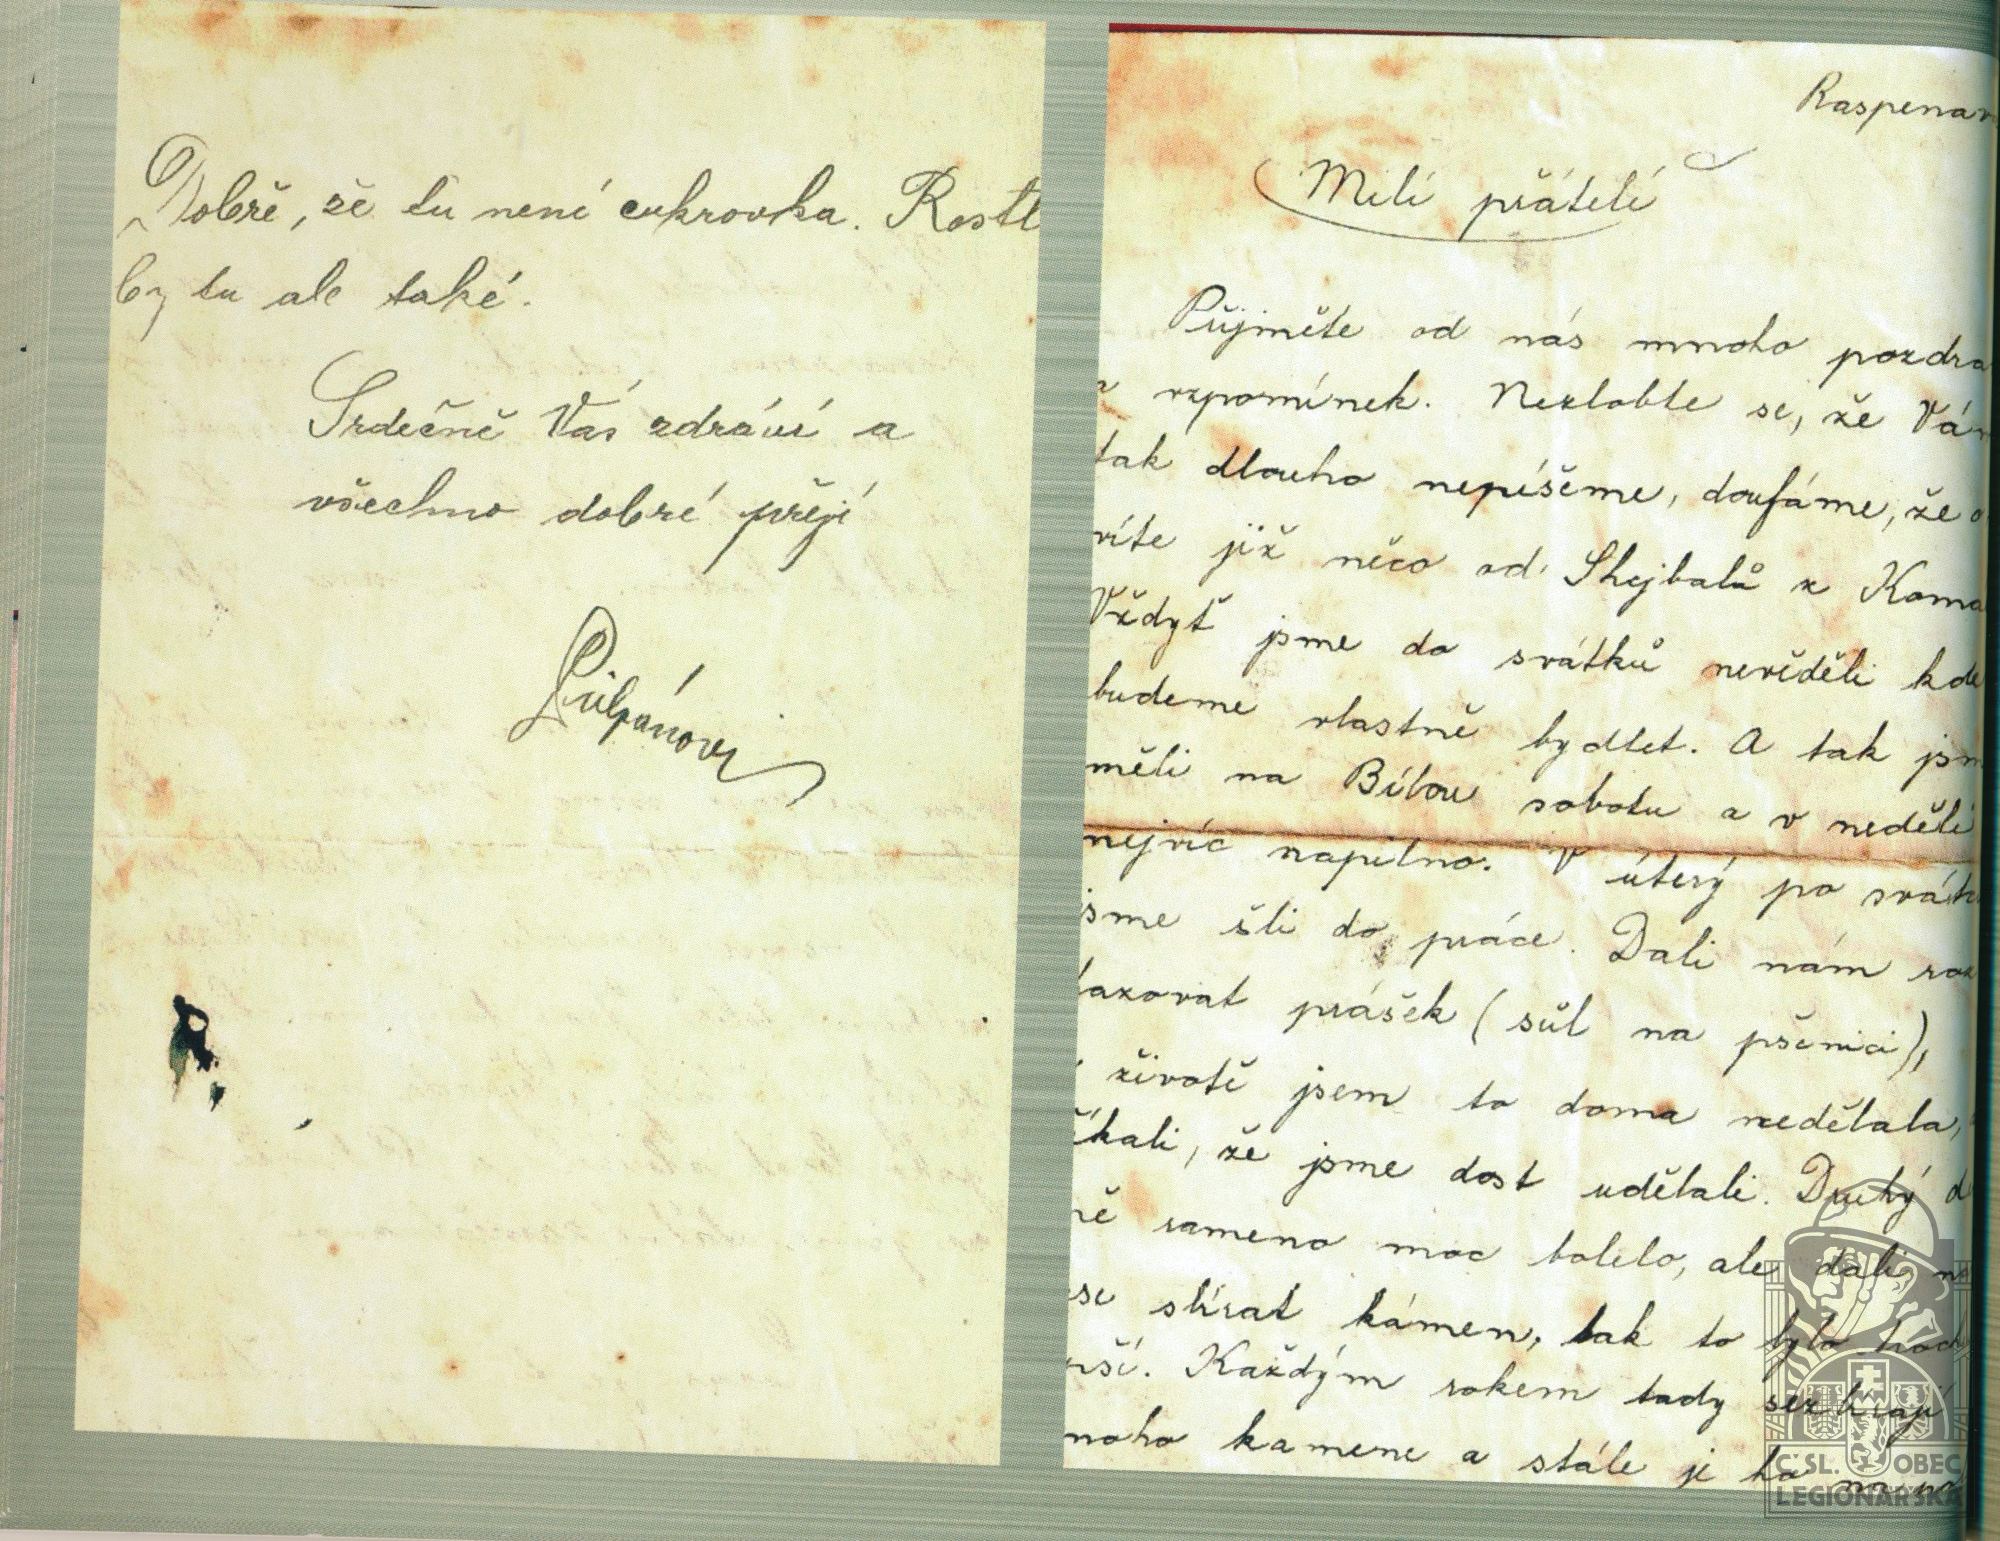 Dobře, že tu není cukrovka. Rostl
by tu ale také.
Srdečně Vás zdraví a
všechno dobré přejí
Raspenav
Milí přátelí
Přijměte od nás mnoho pozdra
vzpomínek. Nezlobte se, že Vám
tak dlouho nepíšeme, doufáme, že o
víte již něco od Shejbalů z Koma
Vždyť jsme do svátků nevěděli kde
budeme vlastně bydlet. A tak jsm
měli na Bílou sobotu a v neděli
nejvíc napilno. V úterý po svátk
jsme šli do práce. Dali nám roz
hazovat prášek (sůl na pšenici),
v životě jsem to doma nedělala,
říkali, že jsme dost udělali. Druhý d
ně rameno moc bolelo, ale dali n
se sbírat kámen, tak to bylo hod
pší. Každým rokem tady sezbírají
noho kamene a stále je ho
ČSL. OBEC
LEGIONÁŘSKÁ